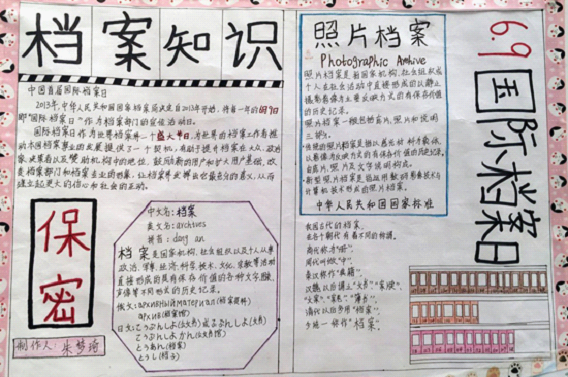 档案知识
中国首届国际档案日
2013年,中华人民共和国国家档案局决定自2013年开始,将每一年的6月9日
即"国际档案日"作为档案部门的宣传活动日。
国际档案日作为世界档案界一个盛大节日,为世界的档案工作者推
动本国档案事业的发展提供了一个契机,有助于提升档案在大众、政治
家、决策者以及
赞助机构中的地位,鼓励新的用户和扩大用户基础,改
变档案部门和档案专业的形象,让档案专业
最负的意义,从而
建立起更大的信心和社会的互动。
保密
制作人:朱梦琦
中文名:档案
英文名:archives
拼音:dang an
档案是国家机构、社会组织以及个人从事
政治、军事、经济、科学、技术、文化、宗教等活动
直接形成的具有保存价值的各种文字、图表、
声像等不同形式的历史记录。
俄文:архивный материал(档案资料)
архив(档案馆)
日文:こうぶんしょ(公文书)
こうぶんしょかん(公文书馆)
とうあん(档案)
とうし(档子)
照片档案
Photographic Archive
照片档案是指国家机构、社会组织或
个人在社会活动中直接形成的以静止
摄影影像为主要反映方式的有保存价值
的历史记录。
照片档案一般包括底片、照片和说明
三部分。
传统的照片档案是指以感光材料为载体,
以影像为反映方式的有保存价值的历史记录,
由底片、照片及文字说明构成。
新型照片档案是指运用数码影像技术与
计算机技术形成的照片档案。
中华人民共和国国家标准
我国古代的档案,
在各个朝代有着不同的称谓。
商代称为"册",
周代叫做"中",
秦汉称作"典籍",
汉魏以后谓之"文书""案牍",
"文案""案卷""簿书",
清代以后多用"档案",
今统一称作"档案"。
6.9
国际档案日